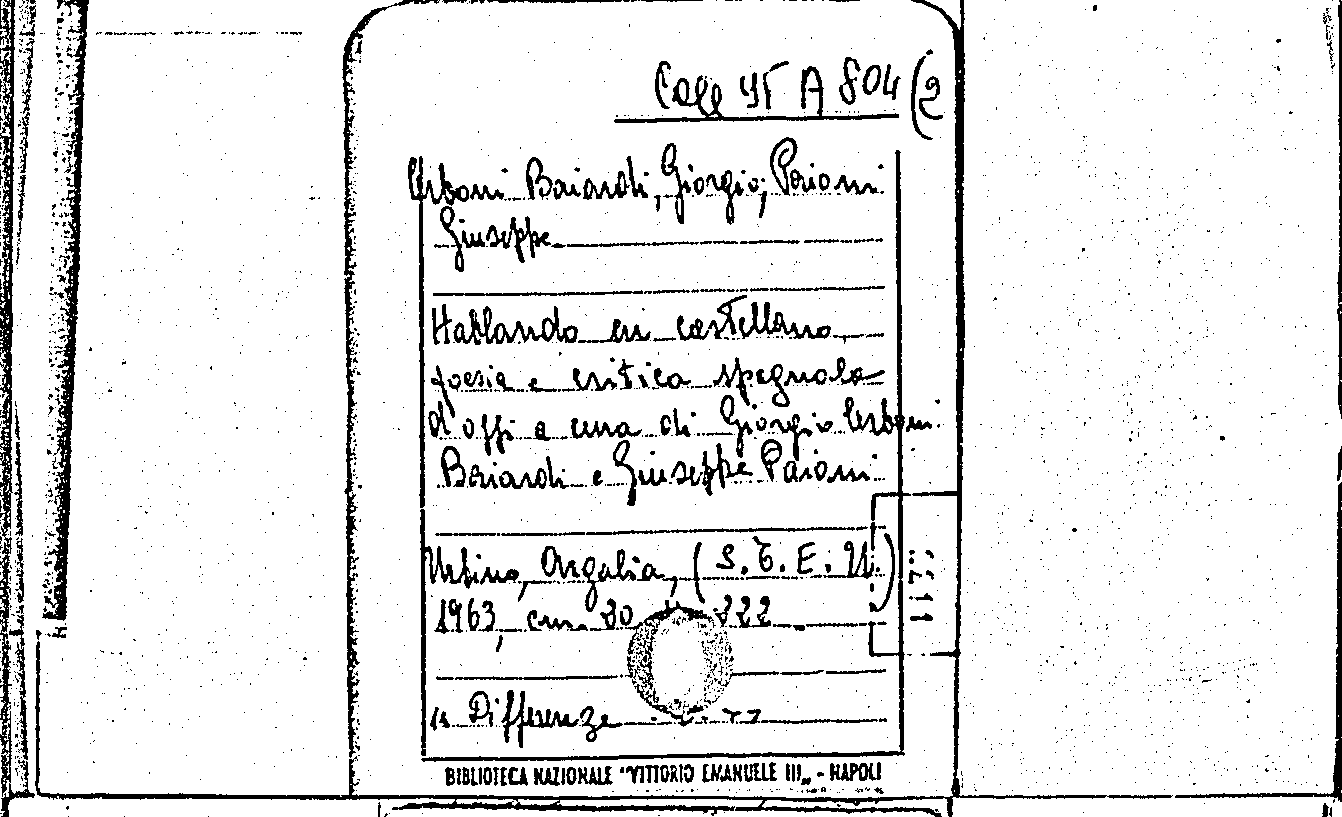 Coll 95 A 804 (2
Cerboni Baiardi, Giorgio; Paioni
Giuseppe
Hablando en castellano
poesia e critica spagnola
d'oggi a cura di Giorgio Cerboni
Baiardi e Giuseppe Paioni
Urbino, Argalia, (S.T.E.U.)
1963, cm. 20 222
Differenze
BIBLIOTECA NAZIONALE "VITTORIO EMANUELE III„ - NAPOLI